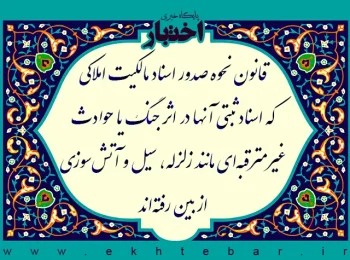 پایگاه خبری
اختبار
قانون نحوه صدور اسناد مالکیت املاکی
که اسناد ثبتی آنها در اثر جنگ یا حوادث
غیرمترقبه‌ای مانند زلزله، سیل و آتش‌سوزی
از بین رفته‌اند
www.ekhtebar.ir